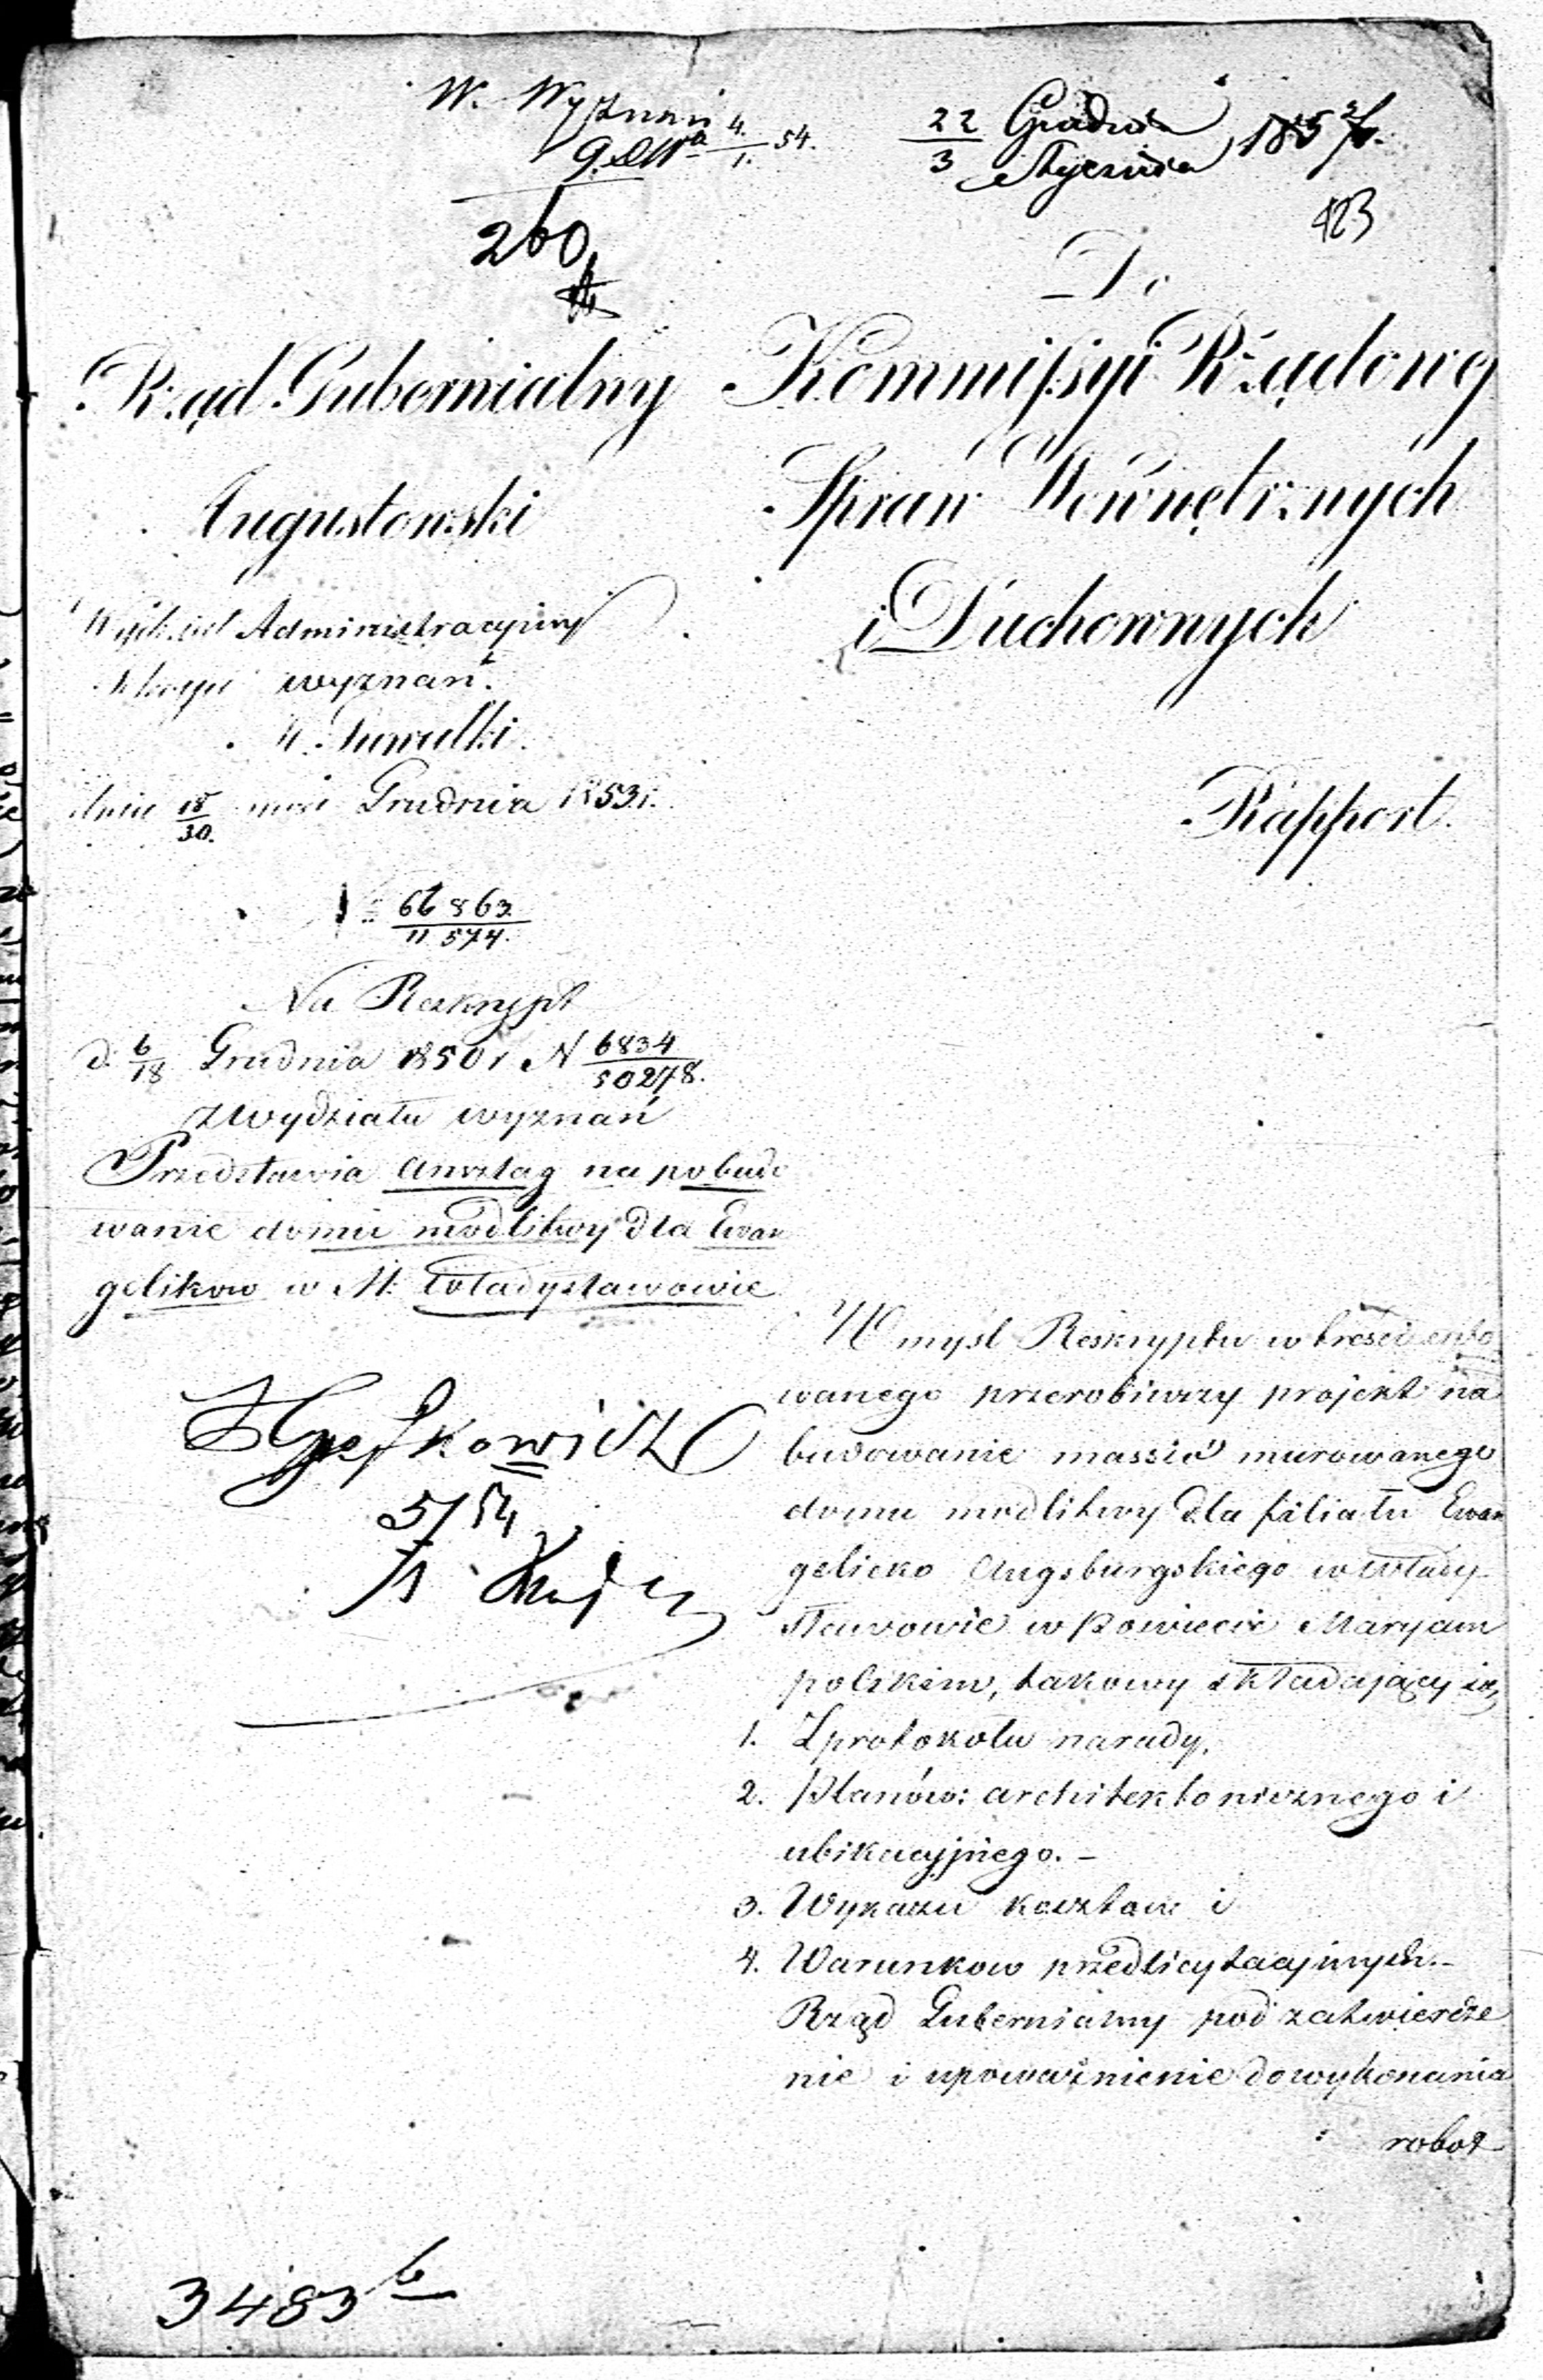 W. Wyznań
4./1. 54.
260
22/3 Grudnia Stycznia 185
423
Do
Rząd Gubernialny
Augustowski
Wydział Administracyjny
Sekcya wyznań.
w Suwałki.
dnia 18/30. msca Grudnia 1853 r.
N 66863/11574.
Na Reskrypt
d. 6/18 Grudnia 1850 r N 6834/50278.
z Wydziału wyznań
Przedstawia Anszlag na pobudo
wanie domu modlitwy dla Ewan
gelikow w M. Władysławowie
5/1 54
Kommissyi Rządowej
Spraw Wewnętrznych
i Duchownych
Rapport.
W myśl Reskryptu w treści cyto
wanego przerobiwszy projekt na
budowanie massiv murowanego
domu modlitwy dla filiału Ewan
gelicko Augsburgskiego w Włady
sławowie w Powiecie Maryam
polskim, takowy składający się
1. Z protokołu narady.
2. Planów: architektonicznego i
ubikacyjnego. –
3. Wykazu kosztow i
4. Warunkow przedlicytacyjnych. –
Rząd Gubernialny pod zatwierdze
nie i upoważnienie do wykonania
robot
3483 b